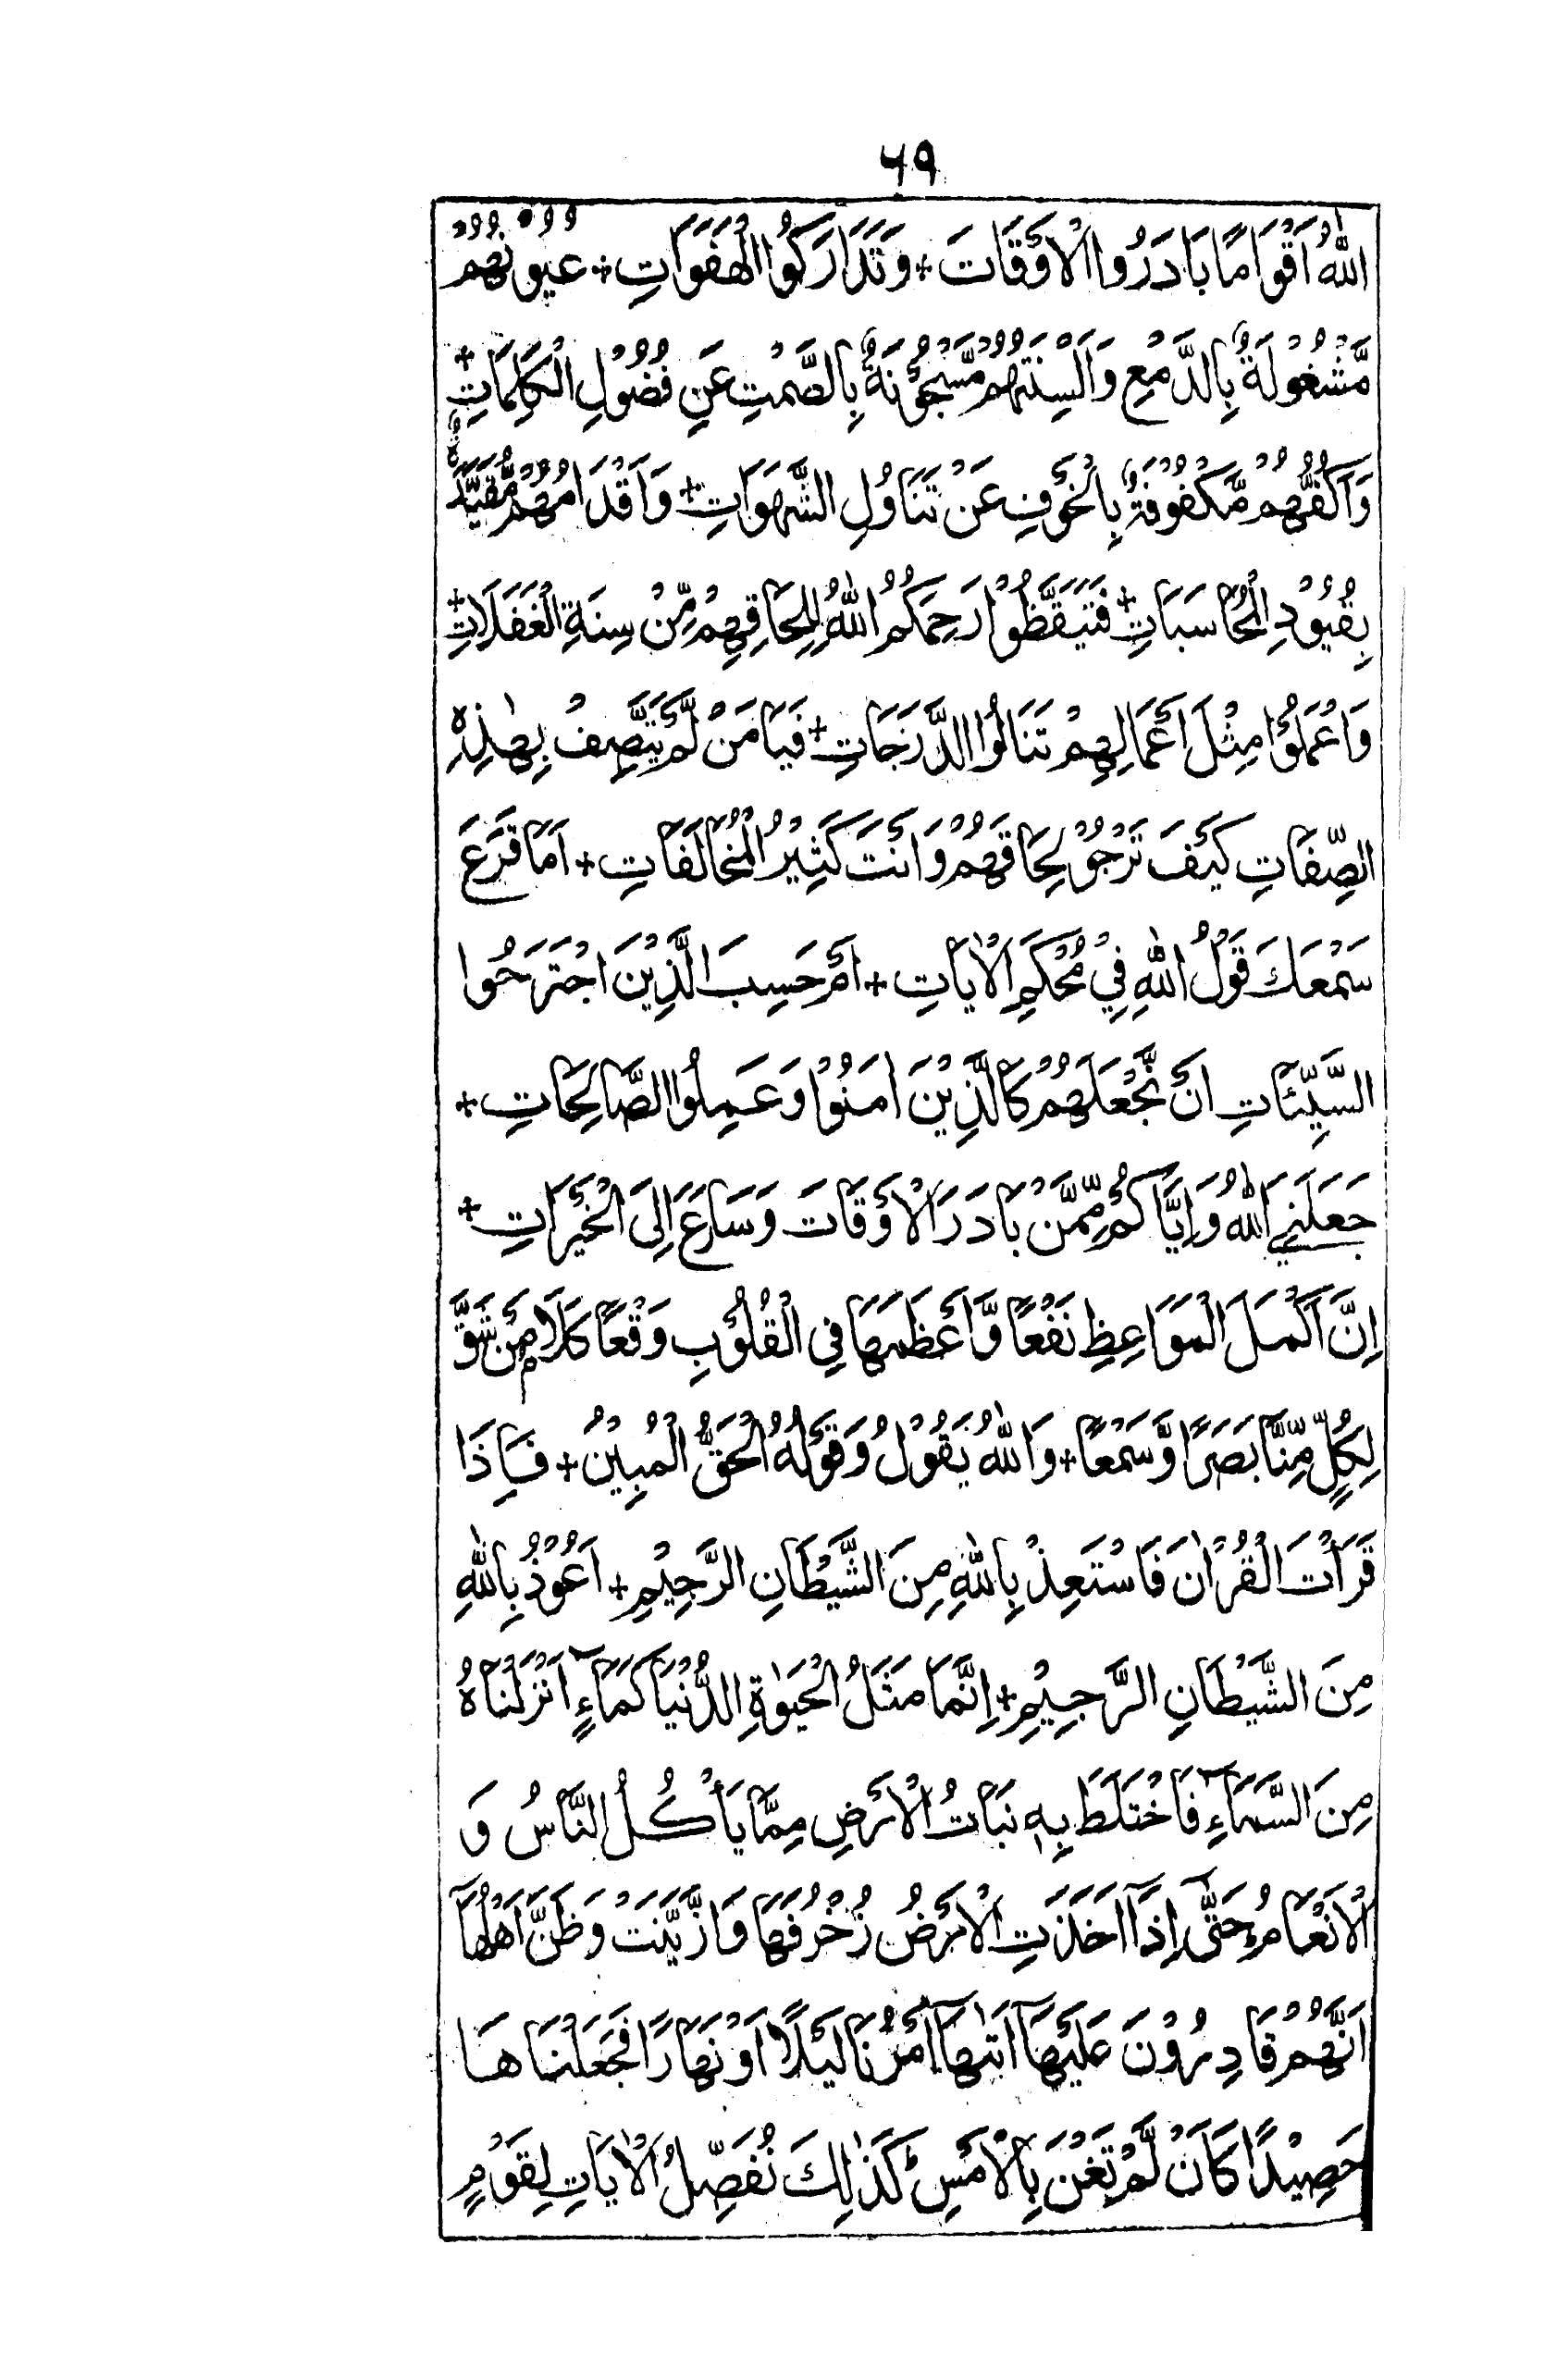 ۶۹
اللّٰهُ اَقْوَامًا بَادَرُوا الْاَوْقَاتَ + وَتَدَارَكُوا الْهَفَوَاتِ + عُيُوْنُهُمْ
مَّشْغُوْلَةٌ بِالدَّمْعِ وَاَلْسِنَتُهُمْ مَّسْجُوْنَةٌ بِالصَّمْتِ عَنِ فُضُوْلِ الْكَلِمَاتِ +
وَاَكُفُّهُمْ مَّكْفُوْفَةٌ بِالْخَوْفِ عَنْ تَنَاوُلِ الشَّهَوَاتِ + وَاَقْدَامُهُمْ مُّقَيَّدَةٌ
بِقُيُوْدِ الْمُحَاسَبَاتِ + فَتَيَقَّظُوْا رَحِمَكُمُ اللّٰهُ لِلِحَاقِهِمْ مِّنْ سِنَةِ الْغَفَلَاتِ +
وَاعْمَلُوْا مِثْلَ اَعْمَالِهِمْ تَنَالُوا الدَّرَجَاتِ + فَيَا مَنْ لَّمْ يَتَّصِفْ بِهٰذِهِ
الصِّفَاتِ كَيْفَ تَرْجُوْ لِحَاقَهُمْ وَاَنْتَ كَثِيْرُ الْمُخَالَفَاتِ + اَمَا قَرَعَ
سَمْعَكَ قَوْلُ اللّٰهِ فِيْ مُحْكَمِ الْاٰيَاتِ + اَمْ حَسِبَ الَّذِيْنَ اجْتَرَحُوا
السَّيِّئَاتِ اَنْ نَّجْعَلَهُمْ كَالَّذِيْنَ اٰمَنُوْا وَعَمِلُوا الصَّالِحَاتِ +
جَعَلَنِيَ اللّٰهُ وَاِيَّاكُمْ مِّمَّنْ بَادَرَ الْاَوْقَاتَ وَسَارَعَ اِلَى الْخَيْرَاتِ +
اِنَّ اَكْمَلَ الْمَوَاعِظِ نَفْعًا وَّاَعْظَمَهَا فِي الْقُلُوْبِ وَقْعًا كَلَامُ مَنْ شَقَّ
لِكُلٍّ مِّنَّا بَصَرًا وَّسَمْعًا + وَاللّٰهُ يَقُوْلُ وَقَوْلُهُ الْحَقُّ الْمُبِيْنُ + فَاِذَا
قَرَاْتَ الْقُرْاٰنَ فَاسْتَعِذْ بِاللّٰهِ مِنَ الشَّيْطَانِ الرَّجِيْمِ + اَعُوْذُ بِاللّٰهِ
مِنَ الشَّيْطَانِ الرَّجِيْمِ + اِنَّمَا مَثَلُ الْحَيٰوةِ الدُّنْيَا كَمَآءٍ اَنْزَلْنَاهُ
مِنَ السَّمَآءِ فَاخْتَلَطَ بِهٖ نَبَاتُ الْاَرْضِ مِمَّا يَاْكُلُ النَّاسُ وَ
الْاَنْعَامُ حَتّٰى اِذَآ اَخَذَتِ الْاَرْضُ زُخْرُفَهَا وَازَّيَّنَتْ وَظَنَّ اَهْلُهَآ
اَنَّهُمْ قَادِرُوْنَ عَلَيْهَآ اَتٰهَآ اَمْرُنَا لَيْلًا اَوْ نَهَارًا فَجَعَلْنَاهَا
حَصِيْدًا كَاَنْ لَّمْ تَغْنَ بِالْاَمْسِ كَذٰلِكَ نُفَصِّلُ الْاٰيَاتِ لِقَوْمٍ